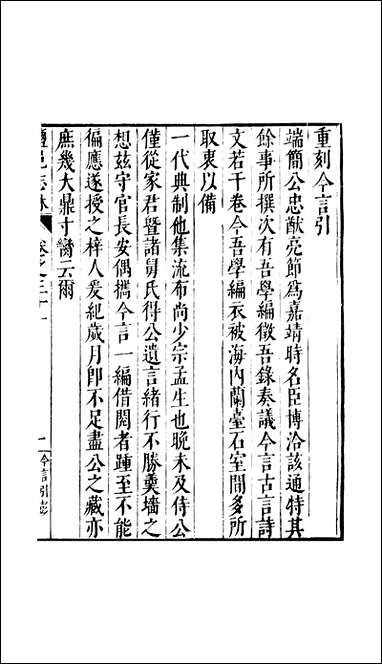 重刻今言引
端簡公忠猷亮節爲嘉靖時名臣博洽該通特其
餘事所撰次有吾學編徵吾錄奏議今言古言詩
文若干卷今吾學編衣被海內蘭臺石室間多所
取衷以備
一代典制他集流布尚少宗孟生也晚未及侍公
僅從家君暨諸舅氏得公遺言緒行不勝羹墻之
想茲守官長安偶攜今言一編借閱者踵至不能
徧應遂授之梓人爰紀歲月卽不足盡公之藏亦
庶幾大鼎寸臠云爾
鹽邑志林
卷之三十一
一
今言引